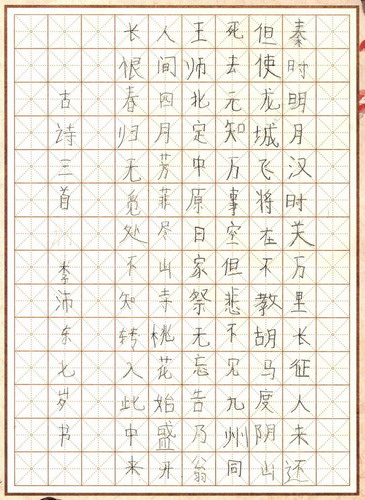 秦时明月汉时关万里长征人未还
但使龙城飞将在不教胡马度阴山
死去元知万事空但悲不见九州同
王师北定中原日家祭无忘告乃翁
人间四月芳菲尽山寺桃花始盛开
长恨春归无觅处不知转入此中来
古诗三首 李沛东七岁书